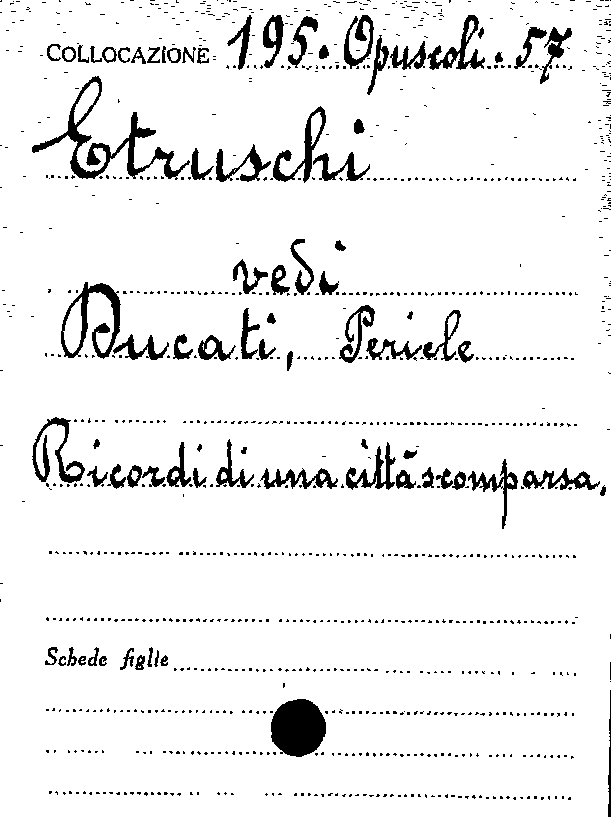 COLLOCAZIONE 195. Opuscoli. 57
Etruschi
vedi
Ducati, Pericle
Ricordi di una città scomparsa.
Schede figlie